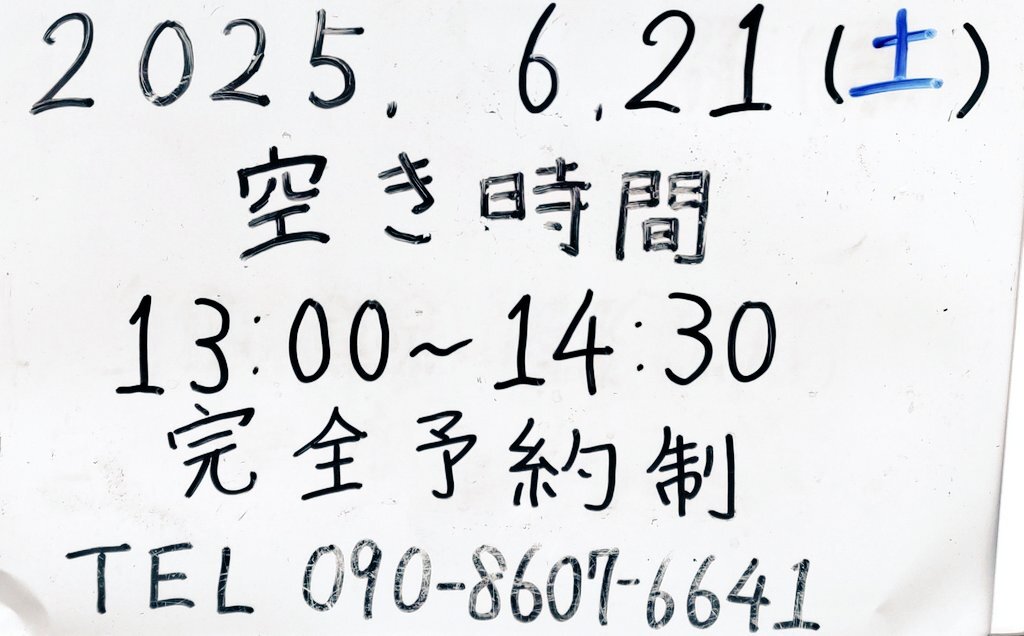 2025. 6.21(土)
空き時間
13:00~14:30
完全予約制
TEL 090-8607-6641